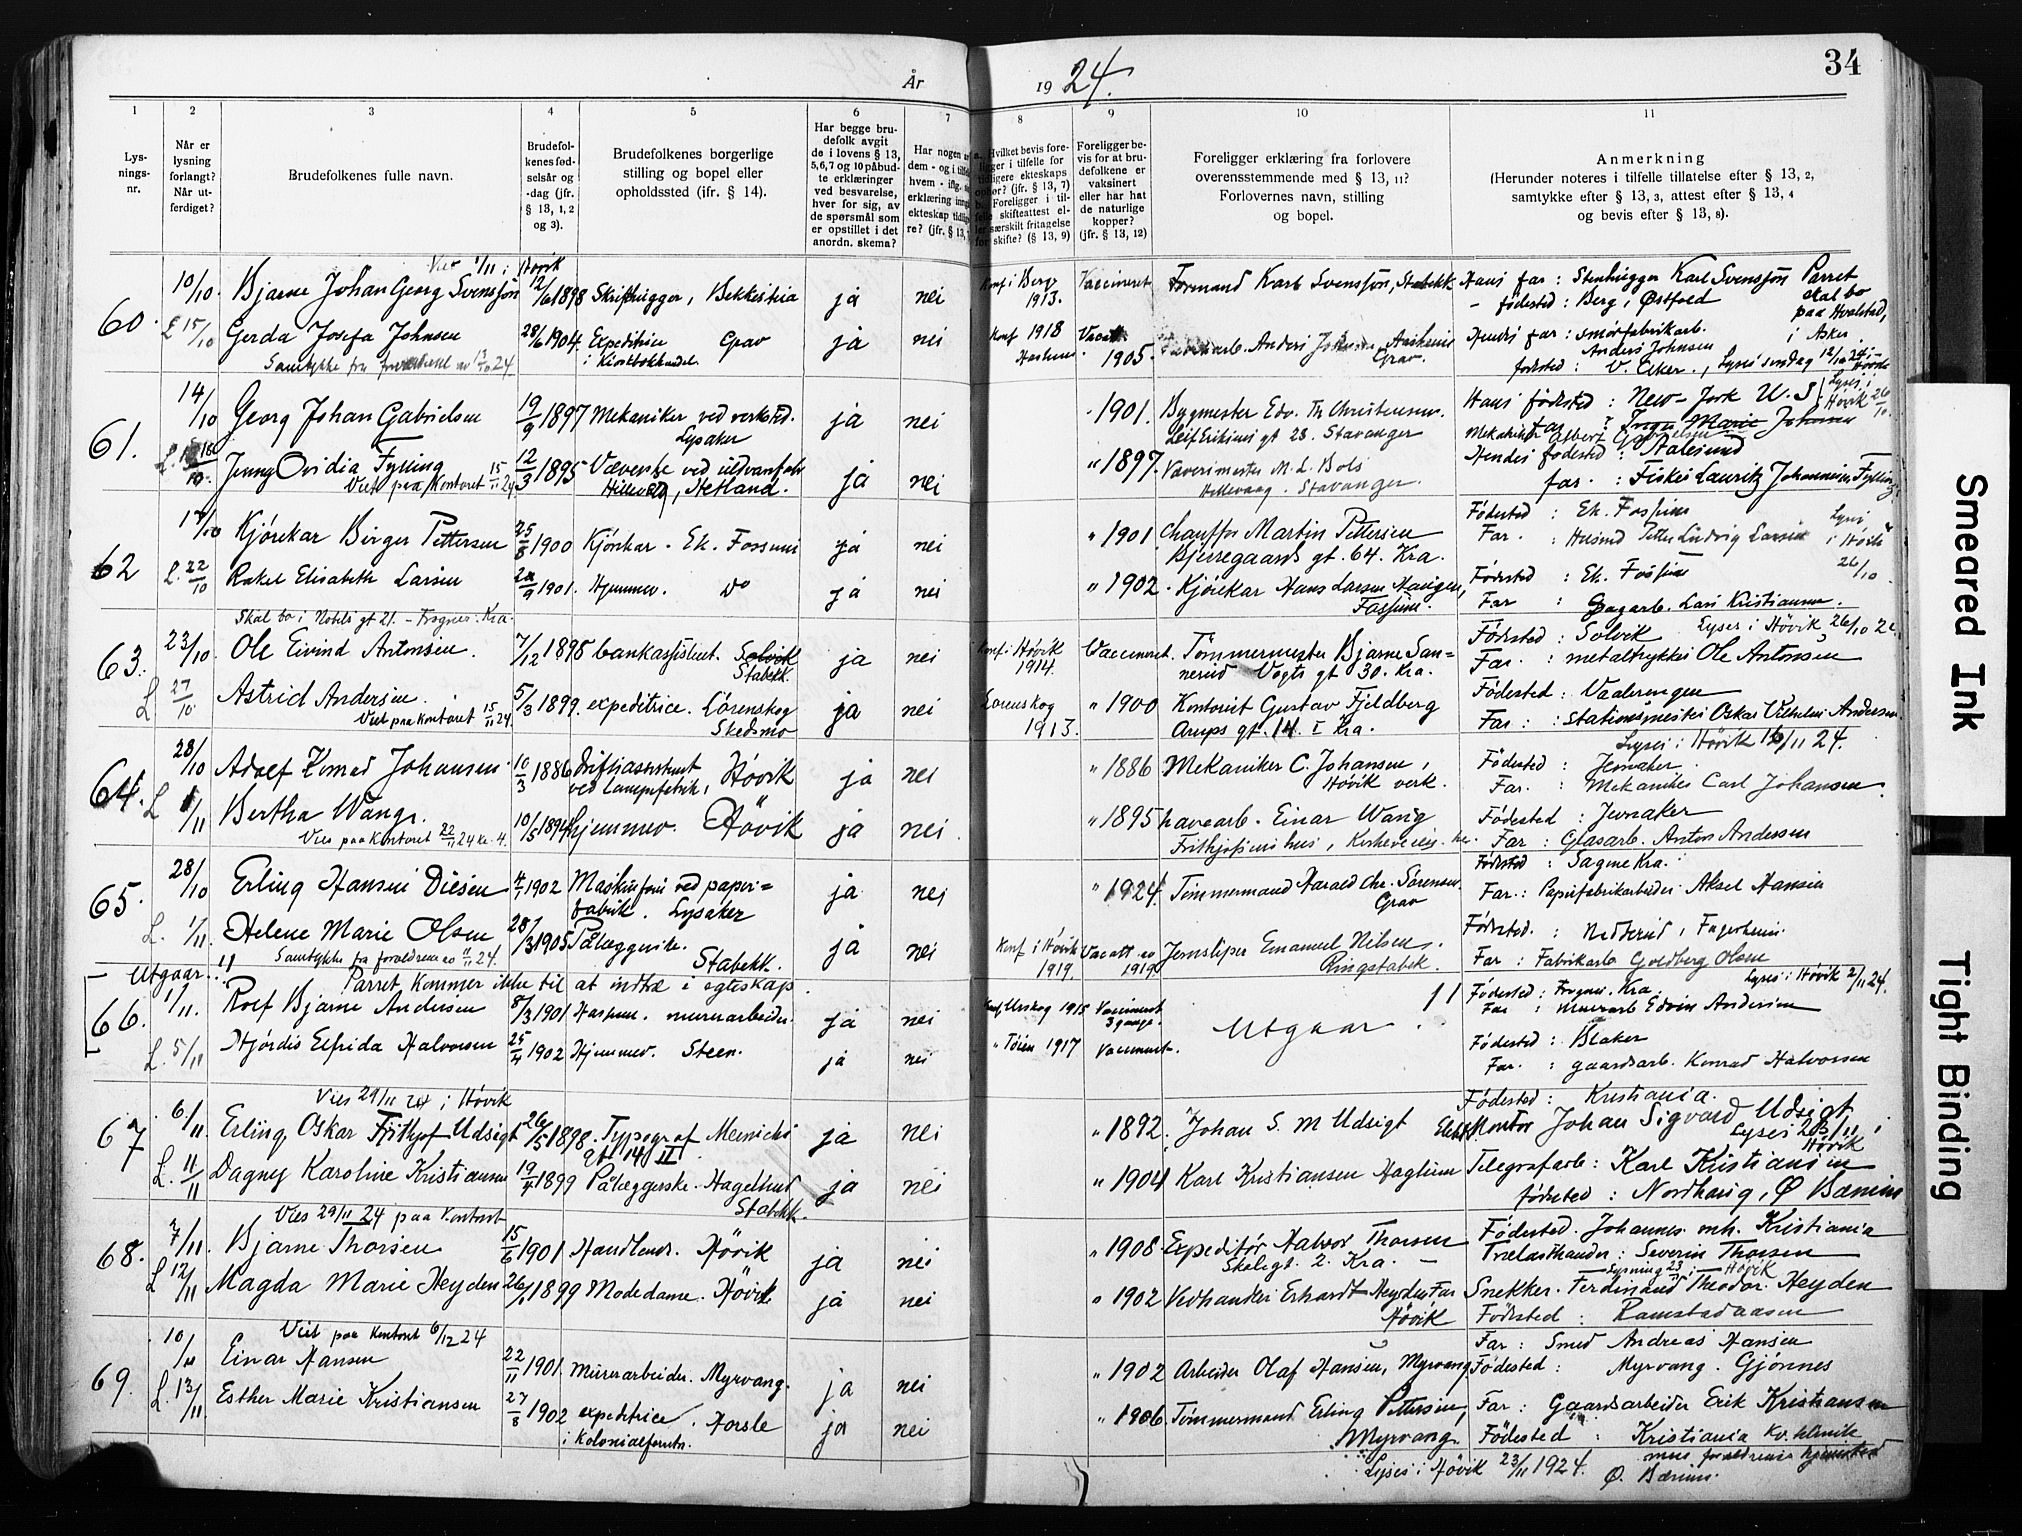 År
19 24.
34
1
2
3
4
5
6
7
8
9
10
11
Lysningsnr.
Når er lysning forlangt? Når utferdiget?
Brudefolkenes fulle navn.
Brudefolkenes fødselsår og -dag (jfr. § 13, 1, 2 og 3).
Brudefolkenes borgerlige stilling og bopel eller opholdssted (ifr. § 14).
Har begge brudefolk avgit de i lovens § 13, 5,6,7 og 10 påbudte erklæringer ved besvarelse, hver for sig, av de spørsmål som er opstillet i det anordn. skema?
Foreligger bevis for at brudefolkene er vaksinert eller har hat de naturlige kopper? (jfr. § 13, 12)
Foreligger erklæring fra forlovere overensstemmende med § 13, 11? Forlovernes navn, stilling og bopel.
Anmerkning
(Herunder noteres i tilfelle tillatelse efter § 13, 2, samtykke efter § 13, 3, attest efter § 13, 4 og bevis efter § 13, 8).
Vies 1/11 i Høvik
60. 10/10. Bjarne Johan Georg Svensson 12/6 1898 Skrifthugger, Bekkestua ja nei Konf i Berg 1913. Vaccineret Formand Karl Svensson, Stabekk Hans far: Stenhugger Karl Svensson Parret skal bo paa Hvalstad, i Asker
- fødested: Berg i Østfold
L 15/10 Gerda Josefa Johnsen 28/6 1904. Expeditrice Grav ja nei Konf 1918 1905. Anders Grav. Hendes far: smørfabrikarb. Anders Johnsen
Samtykke fra 13/10 24 fødested: V. Aker.
61. 14/10 Georg Johan Gabrielsen 19/9 1897 Mekaniker ved verksted. Lysaker ja nei 1901. Bygmester Edv. Th Christensen. Hans fødested: New-York U.S. Lyses i Høvik 26/10
Leif Eriksens gt 28. Stavanger
L. 18/10. Jenny Ovidia Fylling 12/3 1895 Væverske ved uldvarefabr Hillevaag, Hetland. ja nei " 1897. Væverimester M. L. Bols Hendes fødested: Aalesund
Viet paa kontoret 15/11 24 Hillevaag. Stavanger. far. : Fisker Lauritz Johannesen Fylling
62 17/10 Kjørekar Birger Pettersen 25/8 1900 Kjørekar. Ek. Fossum ja nei " 1901 Chauffør Martin Pettersen Fødested : Ek. Fossum
Bjerregaards gt. 64. Kra. Far. : Husmd Petter Ludvig Larsen Lyses i Høvik 26/10
L. 22/10 Rakel Elisabeth Larsen 1901. Hjemmev. do ja nei " 1902. Kjørekar Hans Larsen Haugen, Fossum. Fødested : Ek. Fossum
Skal bo i Nobels gt 21. - Frogner. Kra. Far : Sagarb. Lars Kristiansen.
63. 23/10. Ole Eivind Antonsen. 7/12 1898 bankassistent. Solvik Stabekk. ja nei Konf. i Høvik 1914. Vaccineret. Tømmermester Bjarne Sannerud Vogts gt 30. Kra. Fødested: Solvik Lyses i Høvik 26/10 24
Far. : metaltrykker Ole Antonsen
L 27/10 Astrid Andersen. 5/3 1899. expeditrice. Lørenskog Skedsmo ja nei Lørenskog 1913. " 1900 Kontorist Gustav Fjeldberg Arups gt. 14. I Kra. Fødested: Vaalerengen
Viet paa kontoret 15/11 24 Far: : Stationsmester Oskar Vilhelm Andersen
64. 28/10 Adolf Konrad Johansen. 10/3 1886 driftsassistent ved Lampefabrik, Høvik ja nei " 1886 Mekaniker C. Johansen, Høvik verk. Lyses i Høvik 16/11 24.
Fødested: Jevnaker.
Far. : Mekaniker Carl Johansen
L 1/11 Bertha Wang. 10/5 1894 hjemmev. Høvik ja nei. " 1895 havearb. Einar Wang Fødested : Jevnaker
Vies paa kontoret 22/11 24 kl. 4. Far : Glasarb. Anton Andersen
65. 28/10 Erling Hansen Diesen 1902 Maskinform ved paperfabrik. Lysaker ja nei " 1924. Tømmermand Harald Chr. Sørensen. Grav Fødested : Sagene Kra.
Far. : Papirfabrikarbeider Aksel Hansen
L. 1/11. Helene Marie Olsen 28/3 1905 Pålæggerske. Stabekk. ja nei Konf i Høvik 1919. Vacc att av 1919 Jernsliper Emanuel Nilsen. Ringstabek. Fødested. : Nadderud, Fagerheim.
Samtykke fra forældrene av 24. Far : Fabrikarb Goldberg Olsen
Utgaar..!! Parret kommer ikke til at indtræ i egteskap. Lyses i Høvik 2/11 24.
66. 1/11. Rolf Bjarne Andersen 8/3 1901 Haslum. murerarbeider. ja nei Konf. Urskog 1915 Vaccineret 3 gange. Utgaar. !! Fødested: Frogner. Kra.
Far : murerarb Edvin Andersen
L. 5/11 Hjørdis Elfrida Halvorsen 25/4 1902 Hjemmev. Steen. ja nei " Tøien 1917 Vaccineret. Fødested : Blaker
Far. : gaardsarb. Konrad Halvorsen
Vies 29/11 24 i Høvik
67 6/11 Erling, Oskar Frithjof Udsigt 26/5 1898. Typograf Meinichs gt. 14 II. ja nei " 1892. Johan S. M Udsigt Fødested: Kristiania.
Johan Sigvard Udsigt, Lyses 23/11 i Høvik
L. 11/11 Dagny Karoline Kristiansen 19/4 1899 Pålæggerske. Hagelund Stabekk. ja nei " 1904 Karl Kristiansen Haglund Telegrafarb: Karl Kristiansen
fødested : Nordhaug, Ø Bærum
Vies 29/11 24 paa Kontoret
68. 7/11. Bjarne Thorsen 15/6 1901 Handlende. Høvik ja nei " 1908. Expeditør Halvor Thorsen Skolegt. 2. Kra. - Fødested. Johannes mh. Kristiania
Trælasthandler: Severin Thorsen
L 12/11 Magda Marie Heyden 26/ 1899 Modedame. Høvik ja nei " 1902 Vedhandler Erhardt Heyden Høvik Far Snekker. Ferdinand Theodor Heyden
Lysning 23/11 i Høvik
Fødested : Ramstadaasen
Viet paa kontoret 6/12 24
69. 10/11 Einar Hansen 22/11 1901 murerarbeider. Myrvang. ja nei " 1902 Arbeider Olaf Hansen, Myrvang Far : Smed Andreas Hansen
Fødested: Myrvang. Gjønnes
L. 13/11 Esther Marie Kristiansen 27/8 1902 expeditrice i Kolonialforretn. Horsle ja nei " 1906. Tømmermand Erling Pettersen, Myrvang Far: Gaardsarbeider Erik Kristiansen
Fødested : Kristiania Kv. klinik
men forældrenes hjemsted Ø. Bærum.
Lyses i Høvik 23/11 1924.
Smeared Ink
Tight Binding